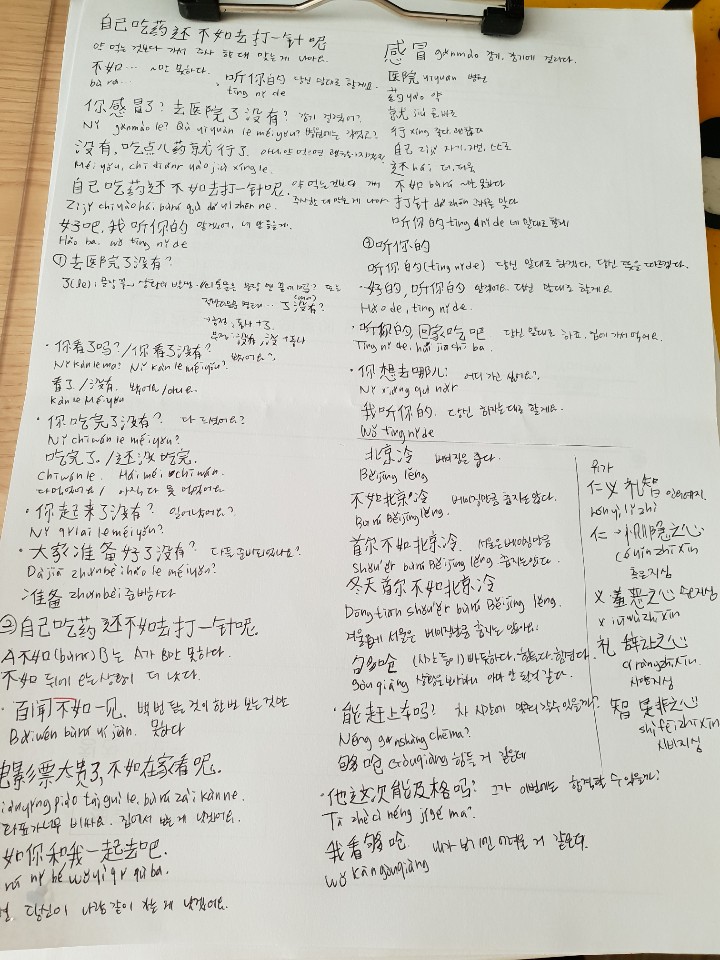 自己吃药还不如去打一针呢
약 먹는 것보다 가서 주사 한 대 맞는 게 나아요.
不如… ~만 못하다.
bù rú…
听你的 당신 말대로 할게요.
tīng nǐ de
你感冒了? 去医院了没有? 감기 걸렸어?
Nǐ gǎnmào le? Qù yīyuàn le méiyǒu? 병원에는 갔었고?
没有, 吃点儿药就行了.
Méi yǒu, chī diǎnr yào jiù xíng le.
自己吃药还不如去打一针呢. 약 먹는 것보다 가서
Zìjǐ chī yào hái bùrú qù dǎ yì zhēn ne. 주사 한 대 맞는 게 나아
好吧, 我听你的 알겠어, 네 말 들을게.
Hǎo ba. wǒ tīng nǐ de
① 去医院了没有?
了(le):
· 你看了吗? / 你看了没有?
Nǐ kàn le ma? Nǐ kàn le méiyǒu? 봤어요?
看了 / 没有.
kàn le Méi yǒu
· 你吃完了没有? 다 드셨어요?
Nǐ chīwán le méiyǒu?
吃完了. / 还没吃完.
Chīwán le. Hái méi chīwán.
다 먹었어요 / 아직 다 못 먹었어요
· 你起来了没有? 일어났어요?
Nǐ qǐ lai le méiyǒu?
· 大家准备好了没有? 다들 준비되었나요?
Dàjiā zhǔnbèi hǎo le méiyǒu?
准备 zhǔnbèi 준비하다
② 自己吃药还不如去打一针呢.
A不如(bùrú)B는 A가 B만 못하다.
不如 뒤에 오는 상황이 더 낫다.
· 百闻不如一见. 백 번 듣는 것이 한 번 보는 것만
Bǎiwén bùrú yí jiàn. 못하다
电影票太贵了, 不如在家看呢.
iànyǐng piào tài guì le, bùrú zài kàn ne.
집에서 보는 게 나아요.
如你和我一起去吧.
rú nǐ hé wǒ yìqǐ qù ba.
당신이 나랑 같이 가는 게 낫겠어요.
感冒 gǎnmào 감기, 감기에 걸리다.
医院 yīyuàn 병원
药 yào 약
就 jiù
行 xíng 좋다, 괜찮다
自己 zìjǐ 자기, 자신, 스스로
还 hái 더, 더욱
不如 bùrú ~만 못하다
打针 dǎ zhēn 주사를 맞다
听你的 tīng nǐ de 네 말대로 할게
③ 听你的
听你的(tīng nǐ de) 당신 말대로 하겠다. 당신 뜻을 따르겠다.
· 好的, 听你的 알겠어요. 당신 말대로 할게요
Hǎo de, tīng nǐ de.
· 听你的, 回家吃吧. 당신 말대로 하죠, 집에 가서 먹어요.
Tīng nǐ de, huí jiā chī ba.
· 你想去哪儿? 어디 가고 싶어요?
Nǐ xiǎng qù nǎr
我听你的. 당신 하자는 대로 할게요.
Wǒ tīng nǐ de
北京冷 베이징은 춥다.
Běijīng lěng
不如北京冷 베이징만큼 춥지는 않다.
Bùrú Běijīng lěng.
首尔不如北京冷. 서울은 베이징만큼
Shǒu'ěr bùrú Běijīng lěng 춥지는 않다
冬天首尔不如北京冷
Dōngtiān shǒu'ěr bùrú Běijīng lěng.
겨울에 서울은 베이징만큼 춥지는 않아요.
够呛 (시간 등이) 빠듯하다. 힘들다. 힘겹다.
gòuqiàng
· 能赶上车吗?
Néng gǎnshàng chē ma?
够呛 Gòuqiàng 힘들 거 같은데
· 他这次能及格吗? 그가 이번에는 합격할 수 있을까?
Tā zhè cì néng jígé ma?
我看够呛. 내가 보기엔 어려울 거 같은데.
Wǒ kàn gòuqiàng
유가
仁义礼智 인의예지
rén yì lǐ zhì
仁 → 恻隐之心
cè yǐn zhī xīn
측은지심
义 羞恶之心 수오지심
xiū wù zhī xīn
礼 辞让之心
cí ràng zhī xīn
사양지심
智 是非之心
shì fēi zhī xīn
시비지심